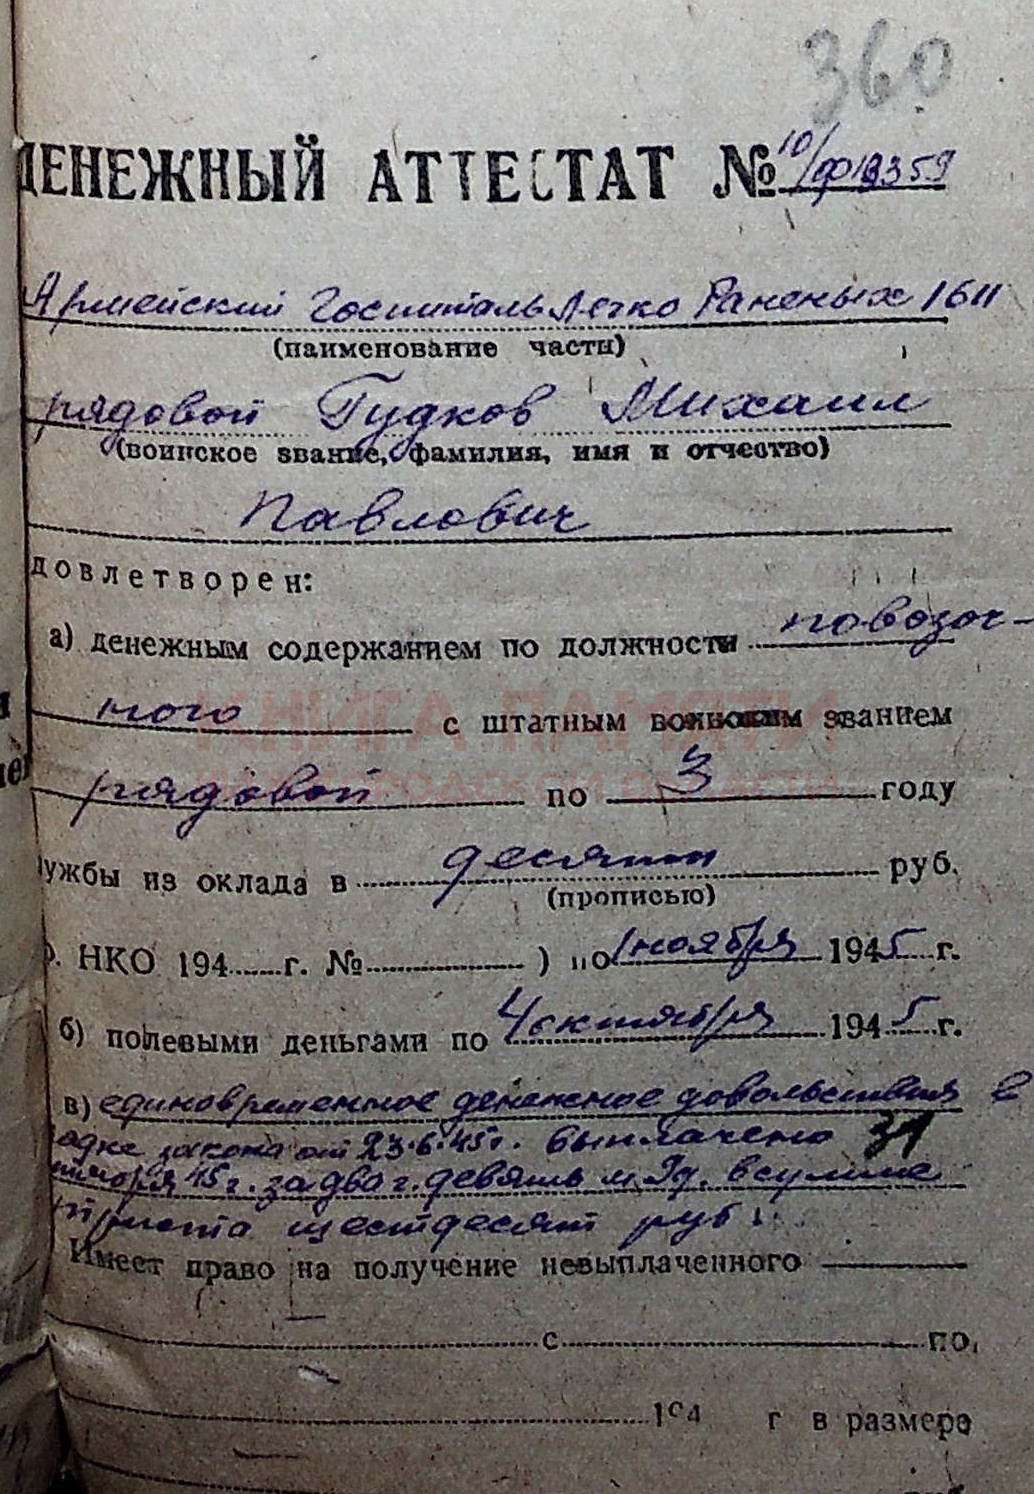 360
ДЕНЕЖНЫЙ АТТЕСТАТ № 10/Ф19359
Армейский Госпиталь Легко Раненых 1611
(наименование части)
рядовой Гудков Михаил
(воинское звание, фамилия, имя и отчество)
Павлович
довлетворен:
а) денежным содержанием по должности повозоч-
ного с штатным воинским званием
КНИГА ПАМЯТИ
НИЖЕГОРОДСКОЙ ОБЛАСТИ
рядовой по 3 году
ужбы из оклада в десяти руб.
(прописью)
НКО 194 г. № ) по 1 ноября 1945 г.
б) полевыми деньгами по 4 октября 1945 г.
в) единовременное денежное довольствия в
адке закона от 23.6.45г. выплачено 31
45 г. за два г. девять м. в сумме
триста шестдесят руб.
Имеет право на получение невыплаченного
с по
194 г в размере